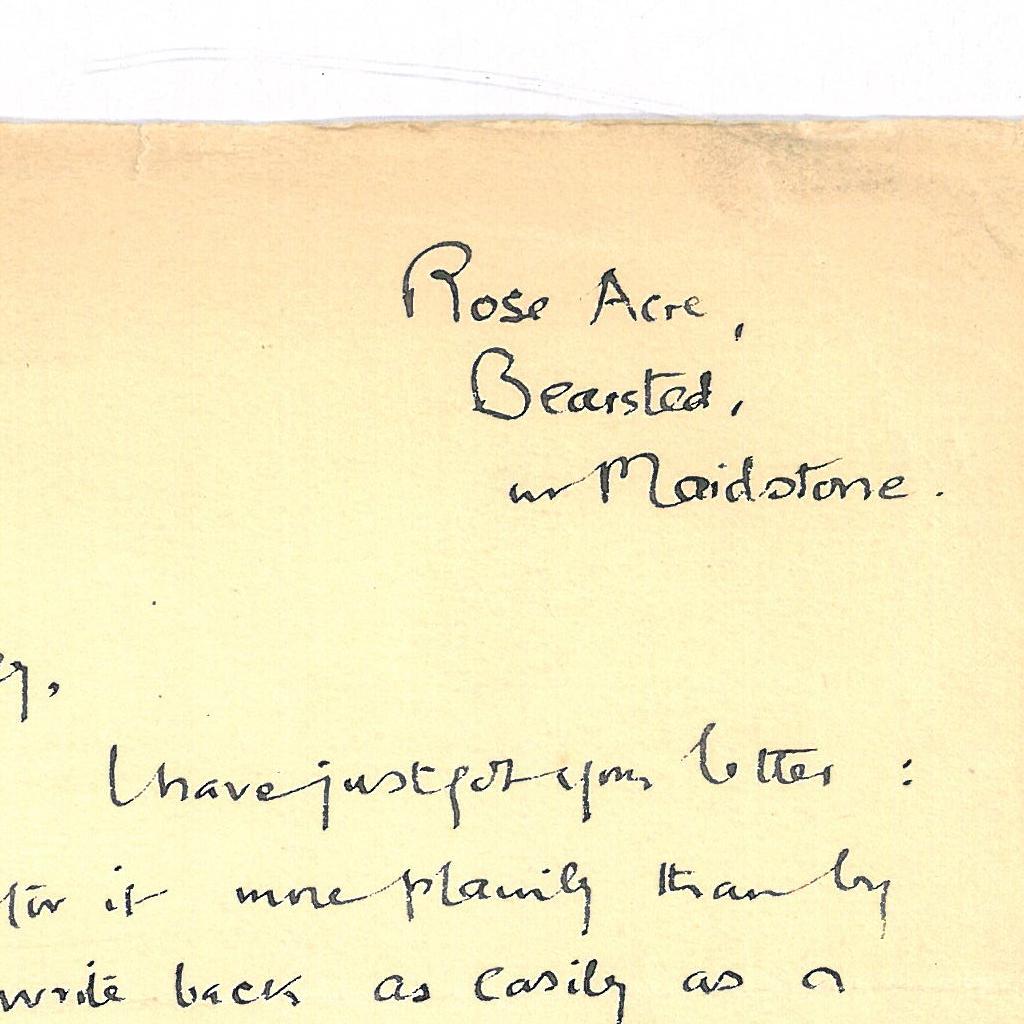 Rose Acre,
Bearsted,
nr Maidstone.
I have just got your letter :
for it more plainly than by
write back as easily as a